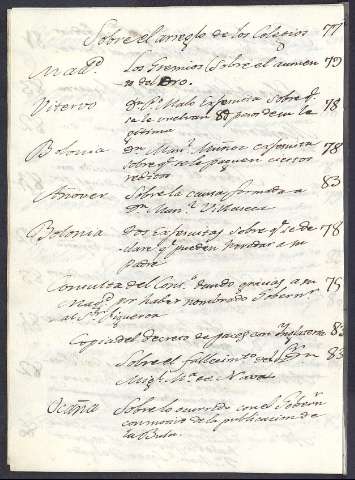 Sobre el arreglo de los Colegios 77
Mad.d Los Gremios sobre el aumen 79
to del Oro.
Vitervo Dn. Malo Exjesuita sobre q.e 78
se le vuelvan
gitima
Bolonia Dn. Man.l Muñoz exjesuita 78
sobre q.e se le paguen ciertos
reditos
Añover Sobre la causa formada a 83
Dn. Man.l Villaseca
Bolonia Dos Exjesuitas sobre q.e se de 78
clare q.e pueden heredar a su
Padre
Consulta del Cons.o dando gracias a su 75
Mag.d por haber nombrado Gobern.r
al S.r Figueroa
Copia del decreto de paces con Inglaterra 83
Sobre el fallecim.to del 83
Mig.l M.a de Nava
Ocaña Sobre lo ocurrido con el Gobern.r
con motivo de la publicacion de
la Bula.